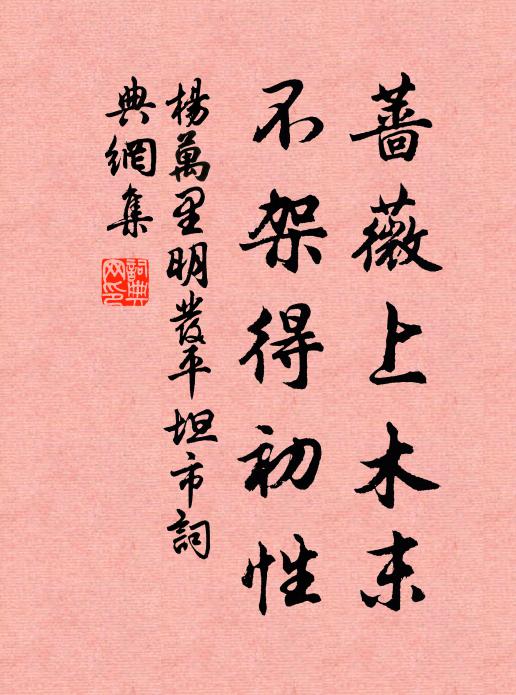 蔷薇上木末
不架得初性
楊萬里明發平坦市詞
典網集
詞典
网印